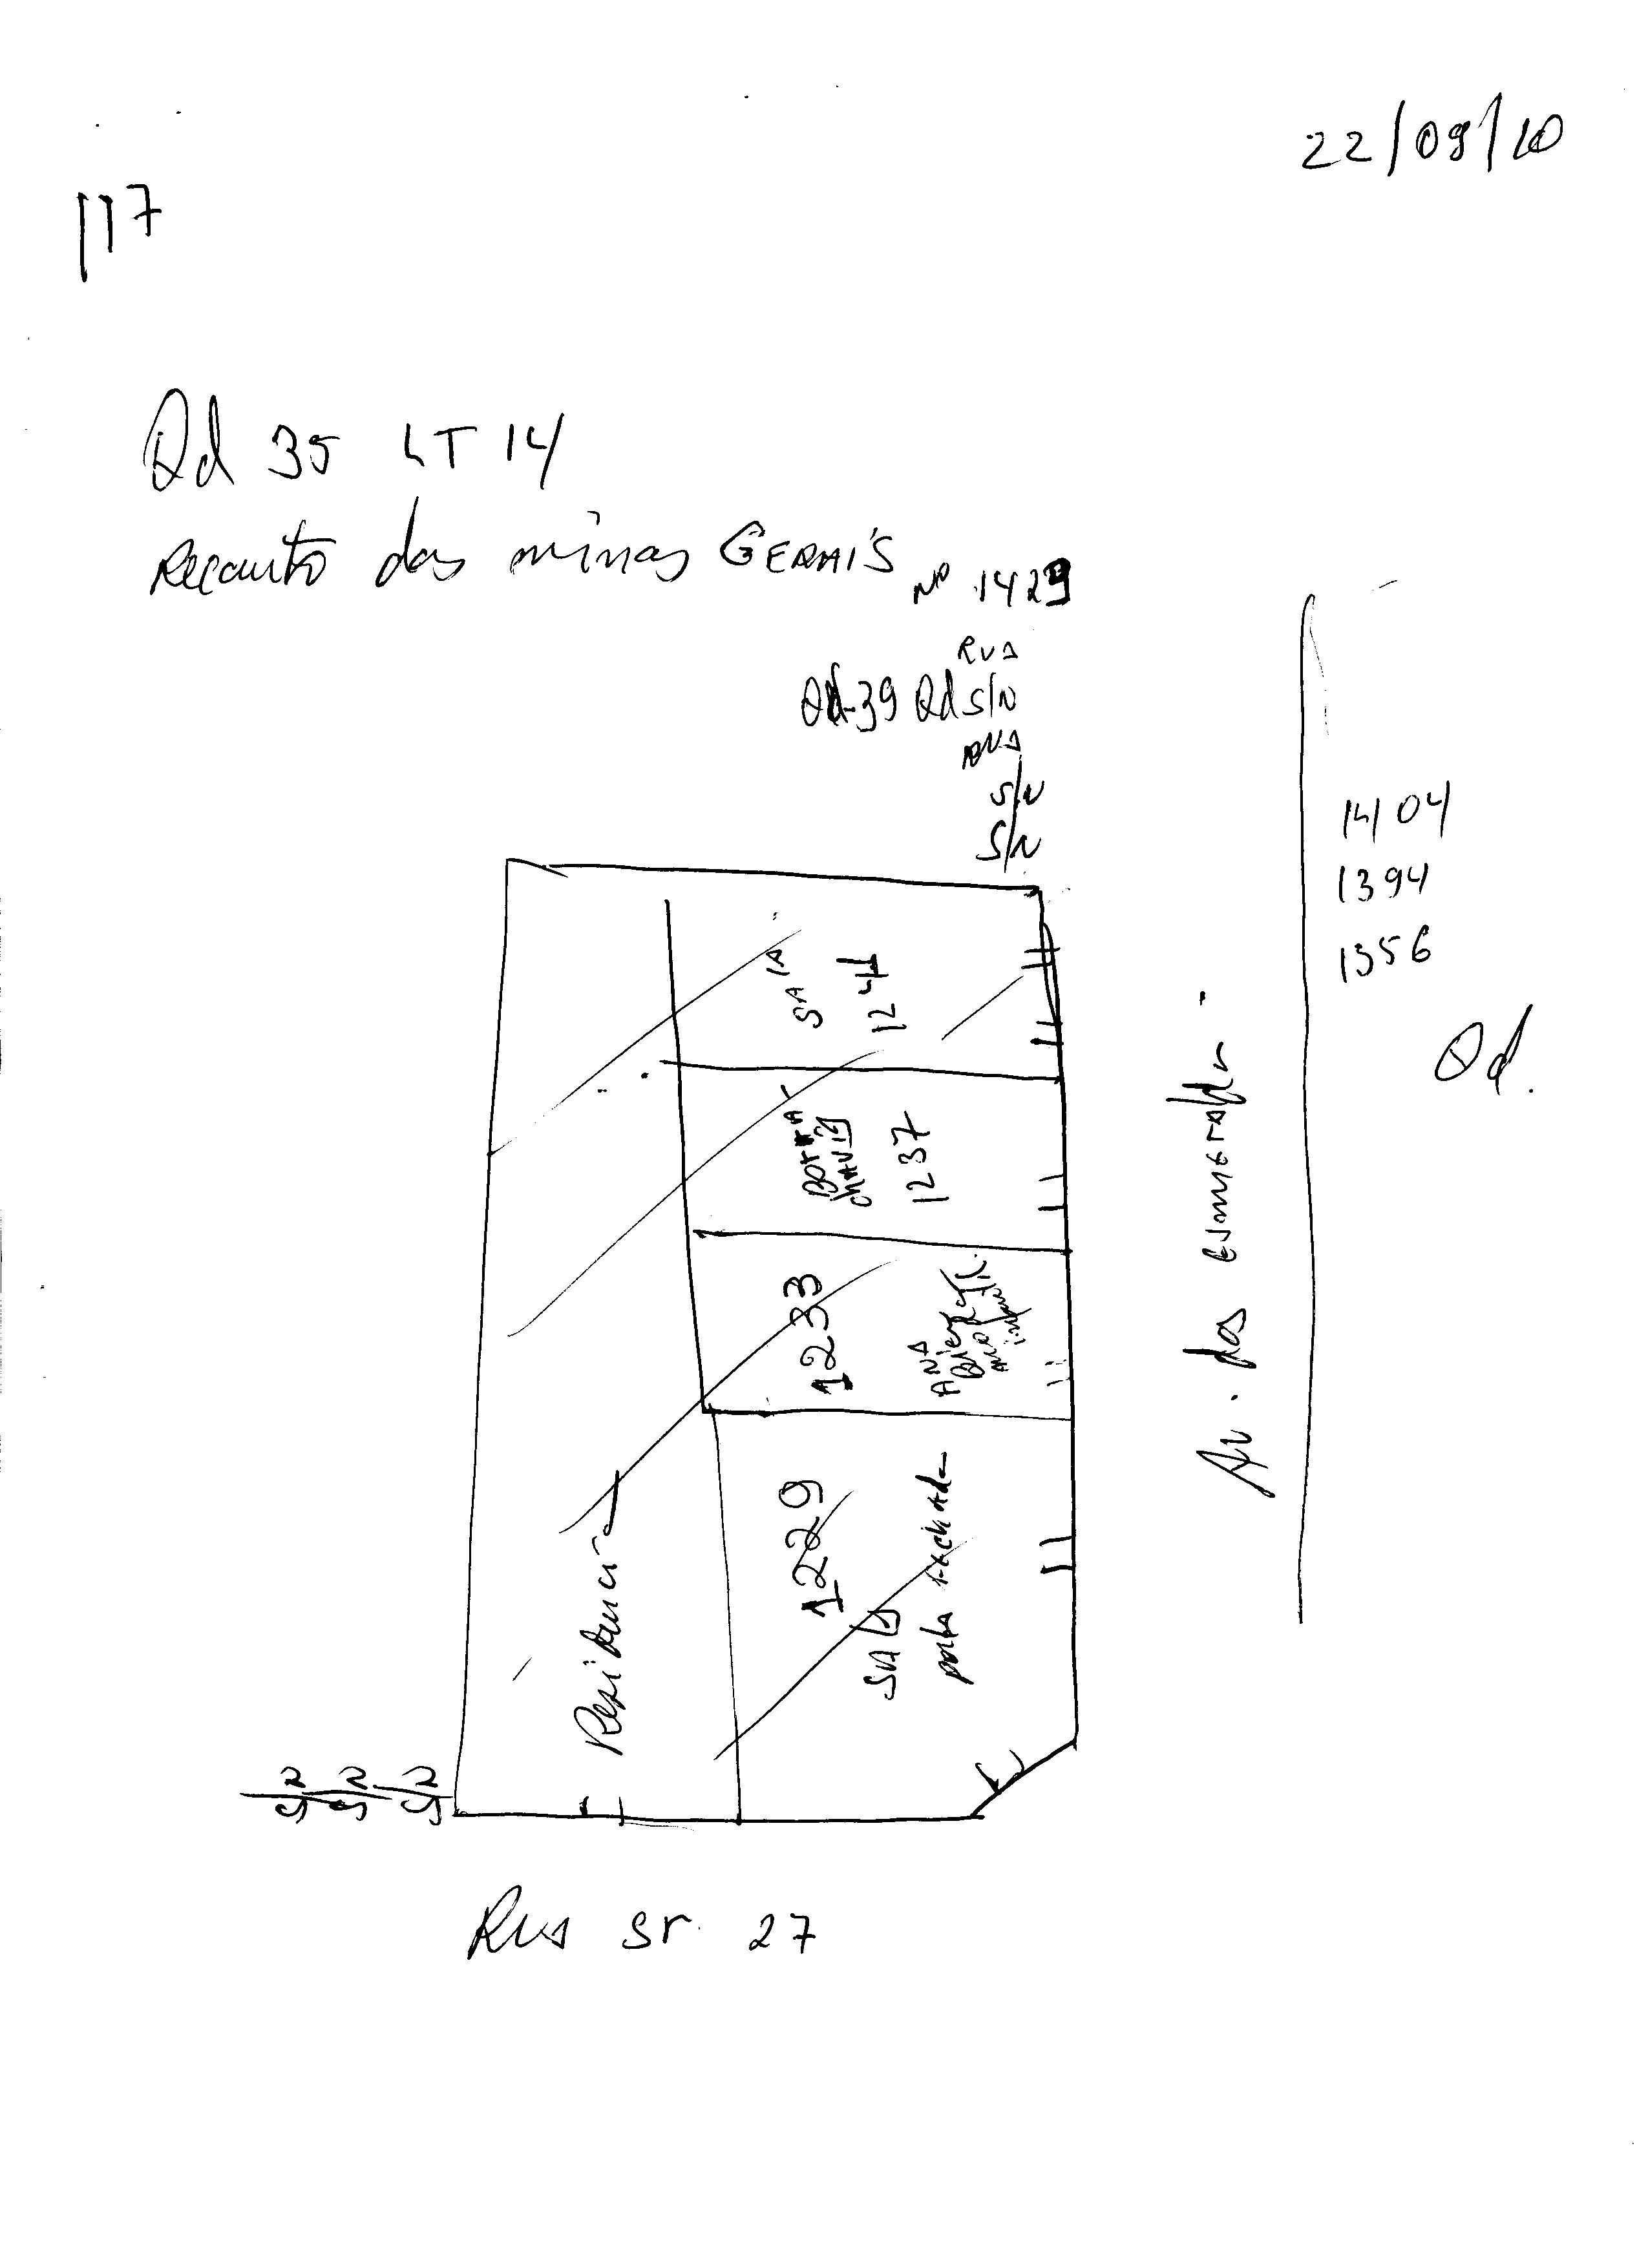 22/09/10
117
Qd 35 LT 14
Recanto das minas GERAIS
Nº 1429
RUA
Qd-39 Qd S/N
RUA
S/N
S/N
1404
1394
1356
Qd.
SALA
1241
CHAVES
1237
1233
ANA
1229
SALA
porta fechada
Residencia
Av. das esmeraldas
S/N S/N S/N
Rua Sr. 27